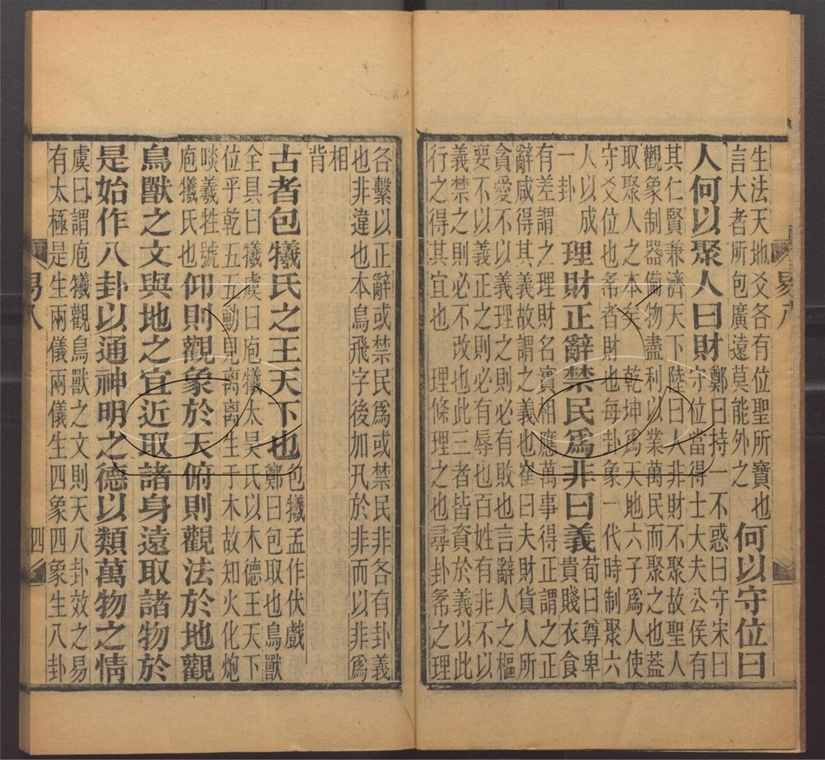 生法天地爻各有位聖所寶也
言大者所包廣遠莫能外之
何以守位曰
人何以聚人曰財
鄭曰持一不惑曰守宋曰
守位當得士大夫公侯有
其仁賢兼濟天下陸曰人非財不聚故聖人
觀象制器備物盡利以業萬民而聚之也蓋
取聚人之本矣 乾坤爲天地六子爲人使
守爻位也夈者財也每卦象一代時制聚六
人以成
一卦
理財正辭禁民爲非曰義
荀曰尊卑
貴賤衣食
有差謂之理財名實相應萬事得正謂之正
辭咸得其義故謂之義也崔曰夫財貨人所
貪愛不以義理之則必有敗也言辭人之樞
要不以義正之則必有辱也百姓有非不以
義禁之則必不改也此三者皆資於義以此
行之得其宜也 理條理之也尋卦夈之理
易八
各繫以正辭或禁民爲或禁民非各有卦義
也非違也本鳥飛字後加卂於非而以非爲
相
背
古者包犧氏之王天下也
包犧孟作伏戲
鄭曰包取也鳥獸
全具曰犧虞曰庖犧太昊氏以木德王天下
位乎乾五五動見離離生于木故知火化炮
啖犧牲號
庖犧氏也
仰則觀象於天俯則觀法於地觀
鳥獸之文與地之宜近取諸身遠取諸物於
是始作八卦以通神明之德以類萬物之情
虞曰謂庖犧觀鳥獸之文則天八卦效之易
有太極是生兩儀兩儀生四象四象生八卦
易八
四